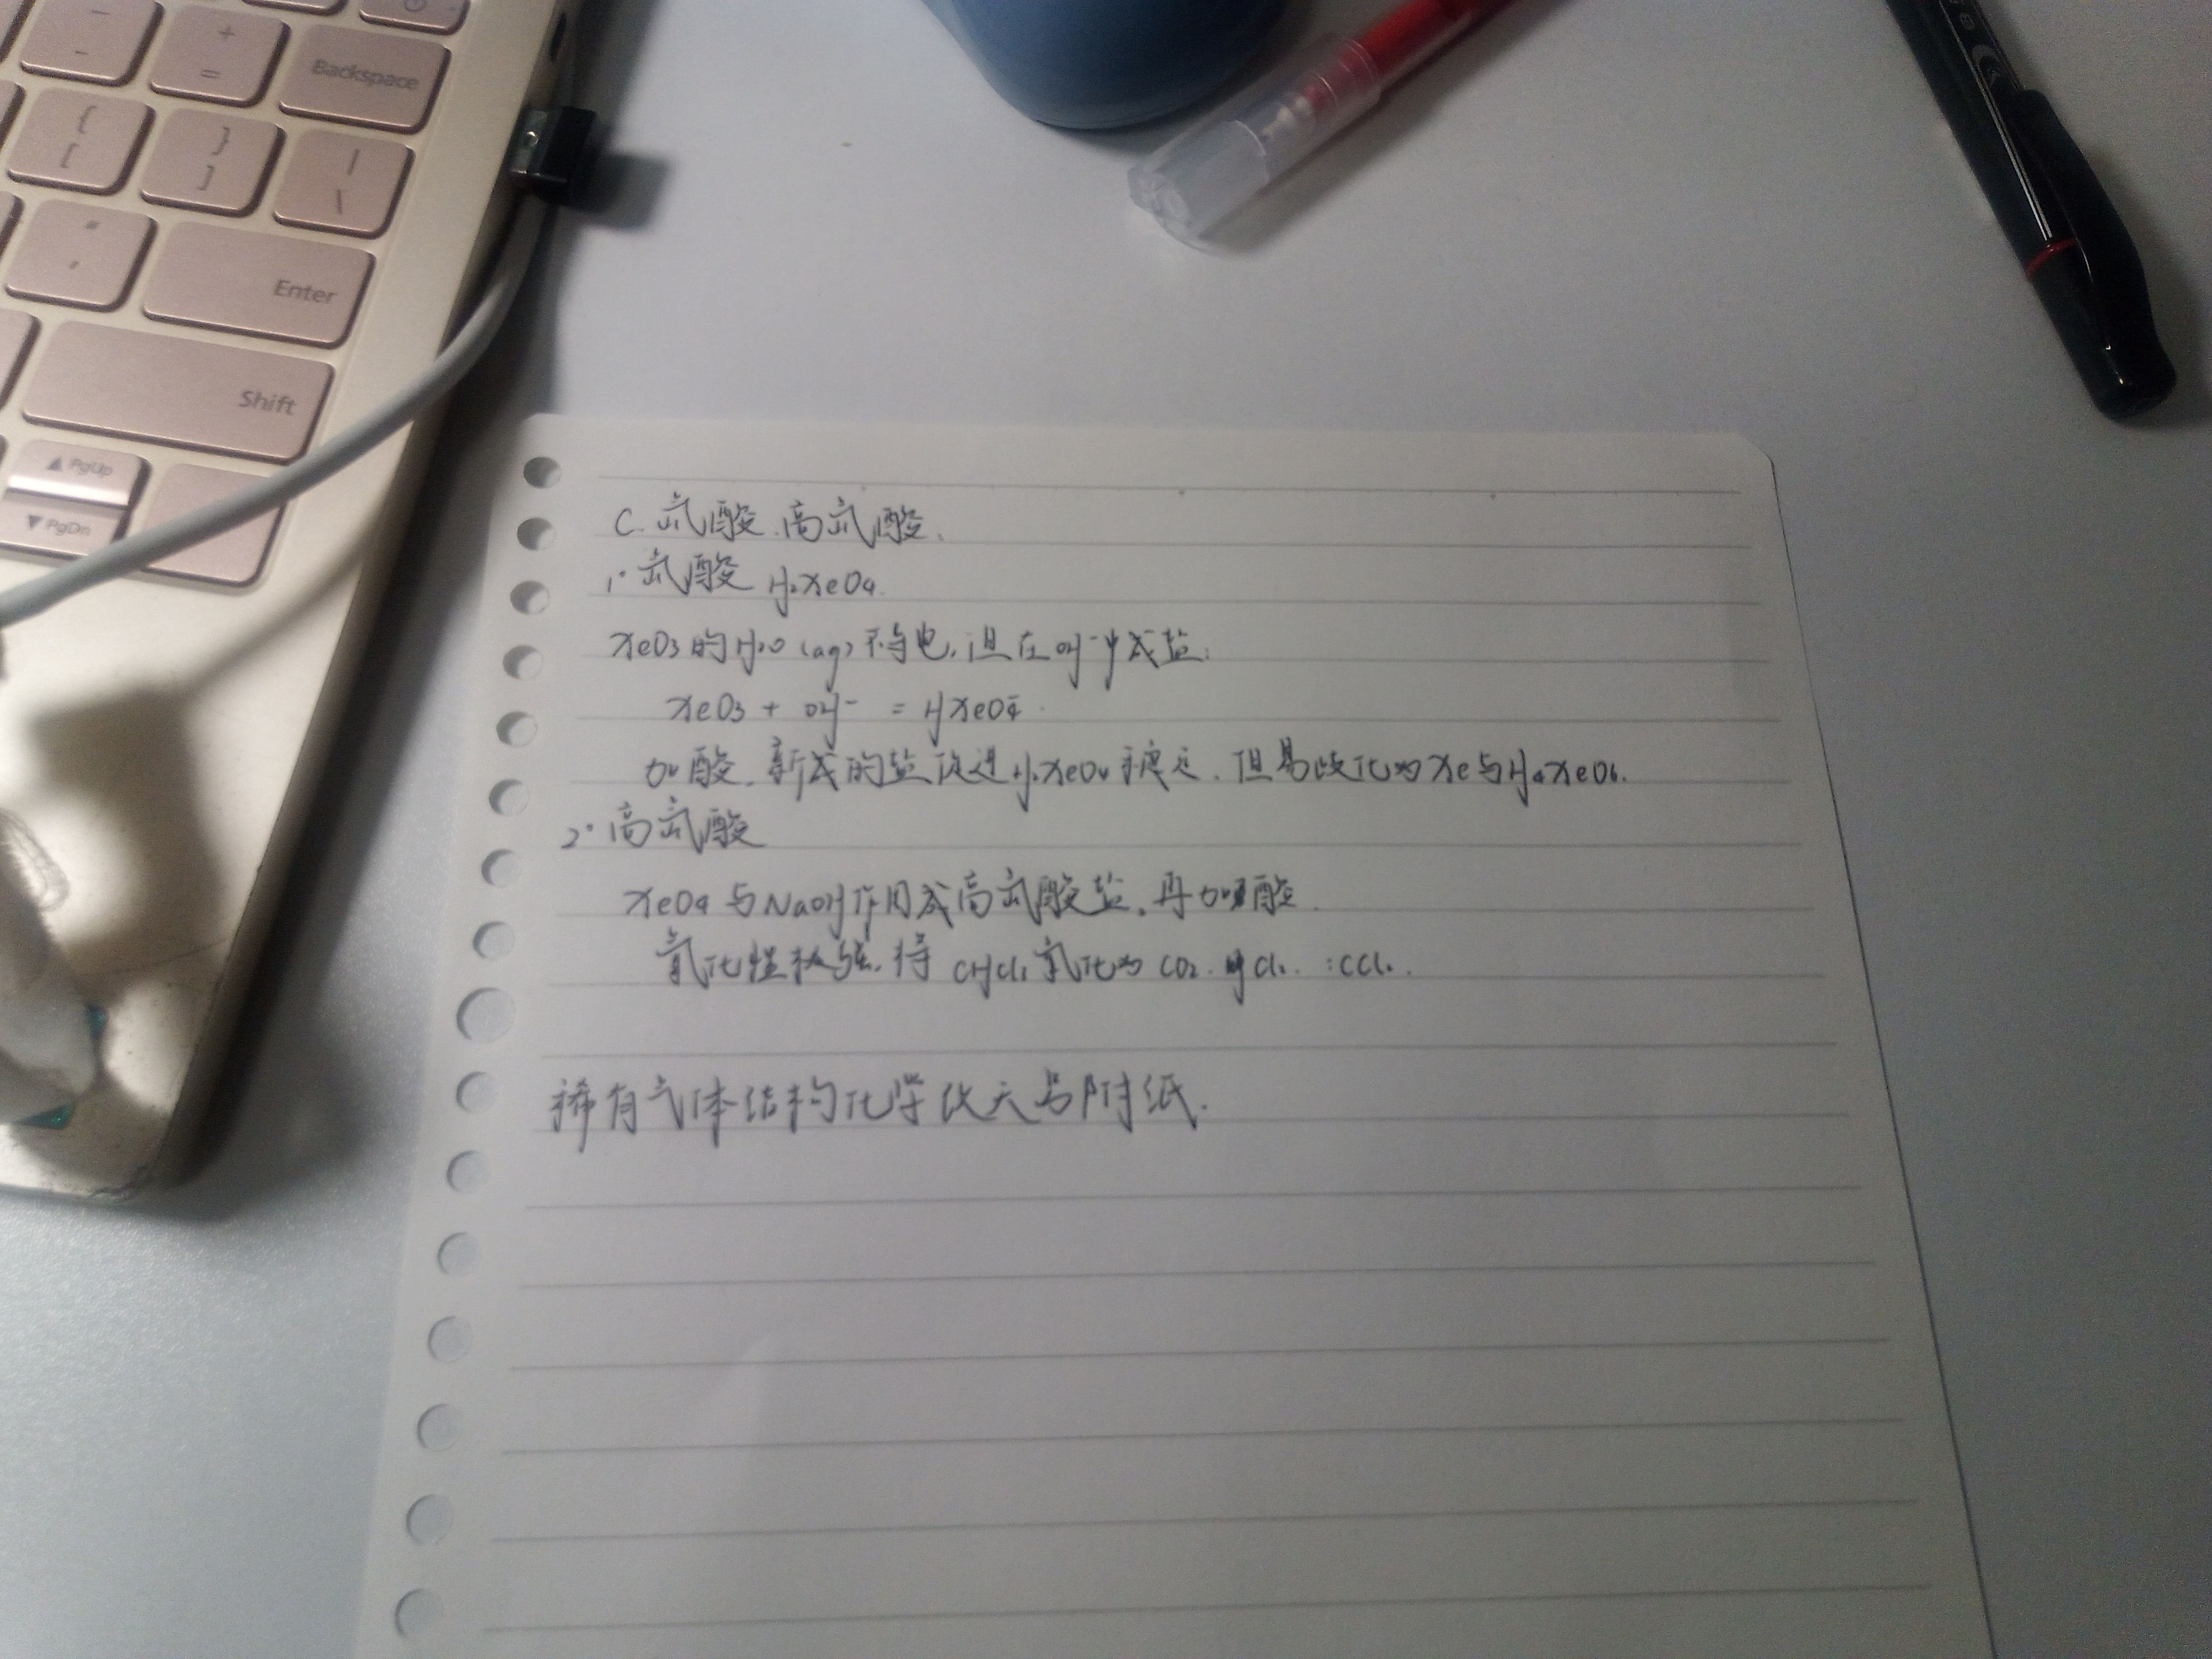 Backspace
Enter
Shift
PgUp
PgDn
C. 氙酸.高氙酸.
1° 氙酸 H₂XeO₄.
XeO₃的H₂O (aq) 不导电,但在OH⁻中成盐:
XeO₃ + OH⁻ = HXeO₄⁻.
加酸.新成的盐 H₂XeO₄ 稳定.但易歧化为Xe与H₄XeO₆.
2° 高氙酸
XeO₄与NaOH作用成高氙酸盐.再加酸.
氧化性极强.将 氧化为 CO₂. Cl₂. :CCl₂.
稀有气体结构化学 附纸.